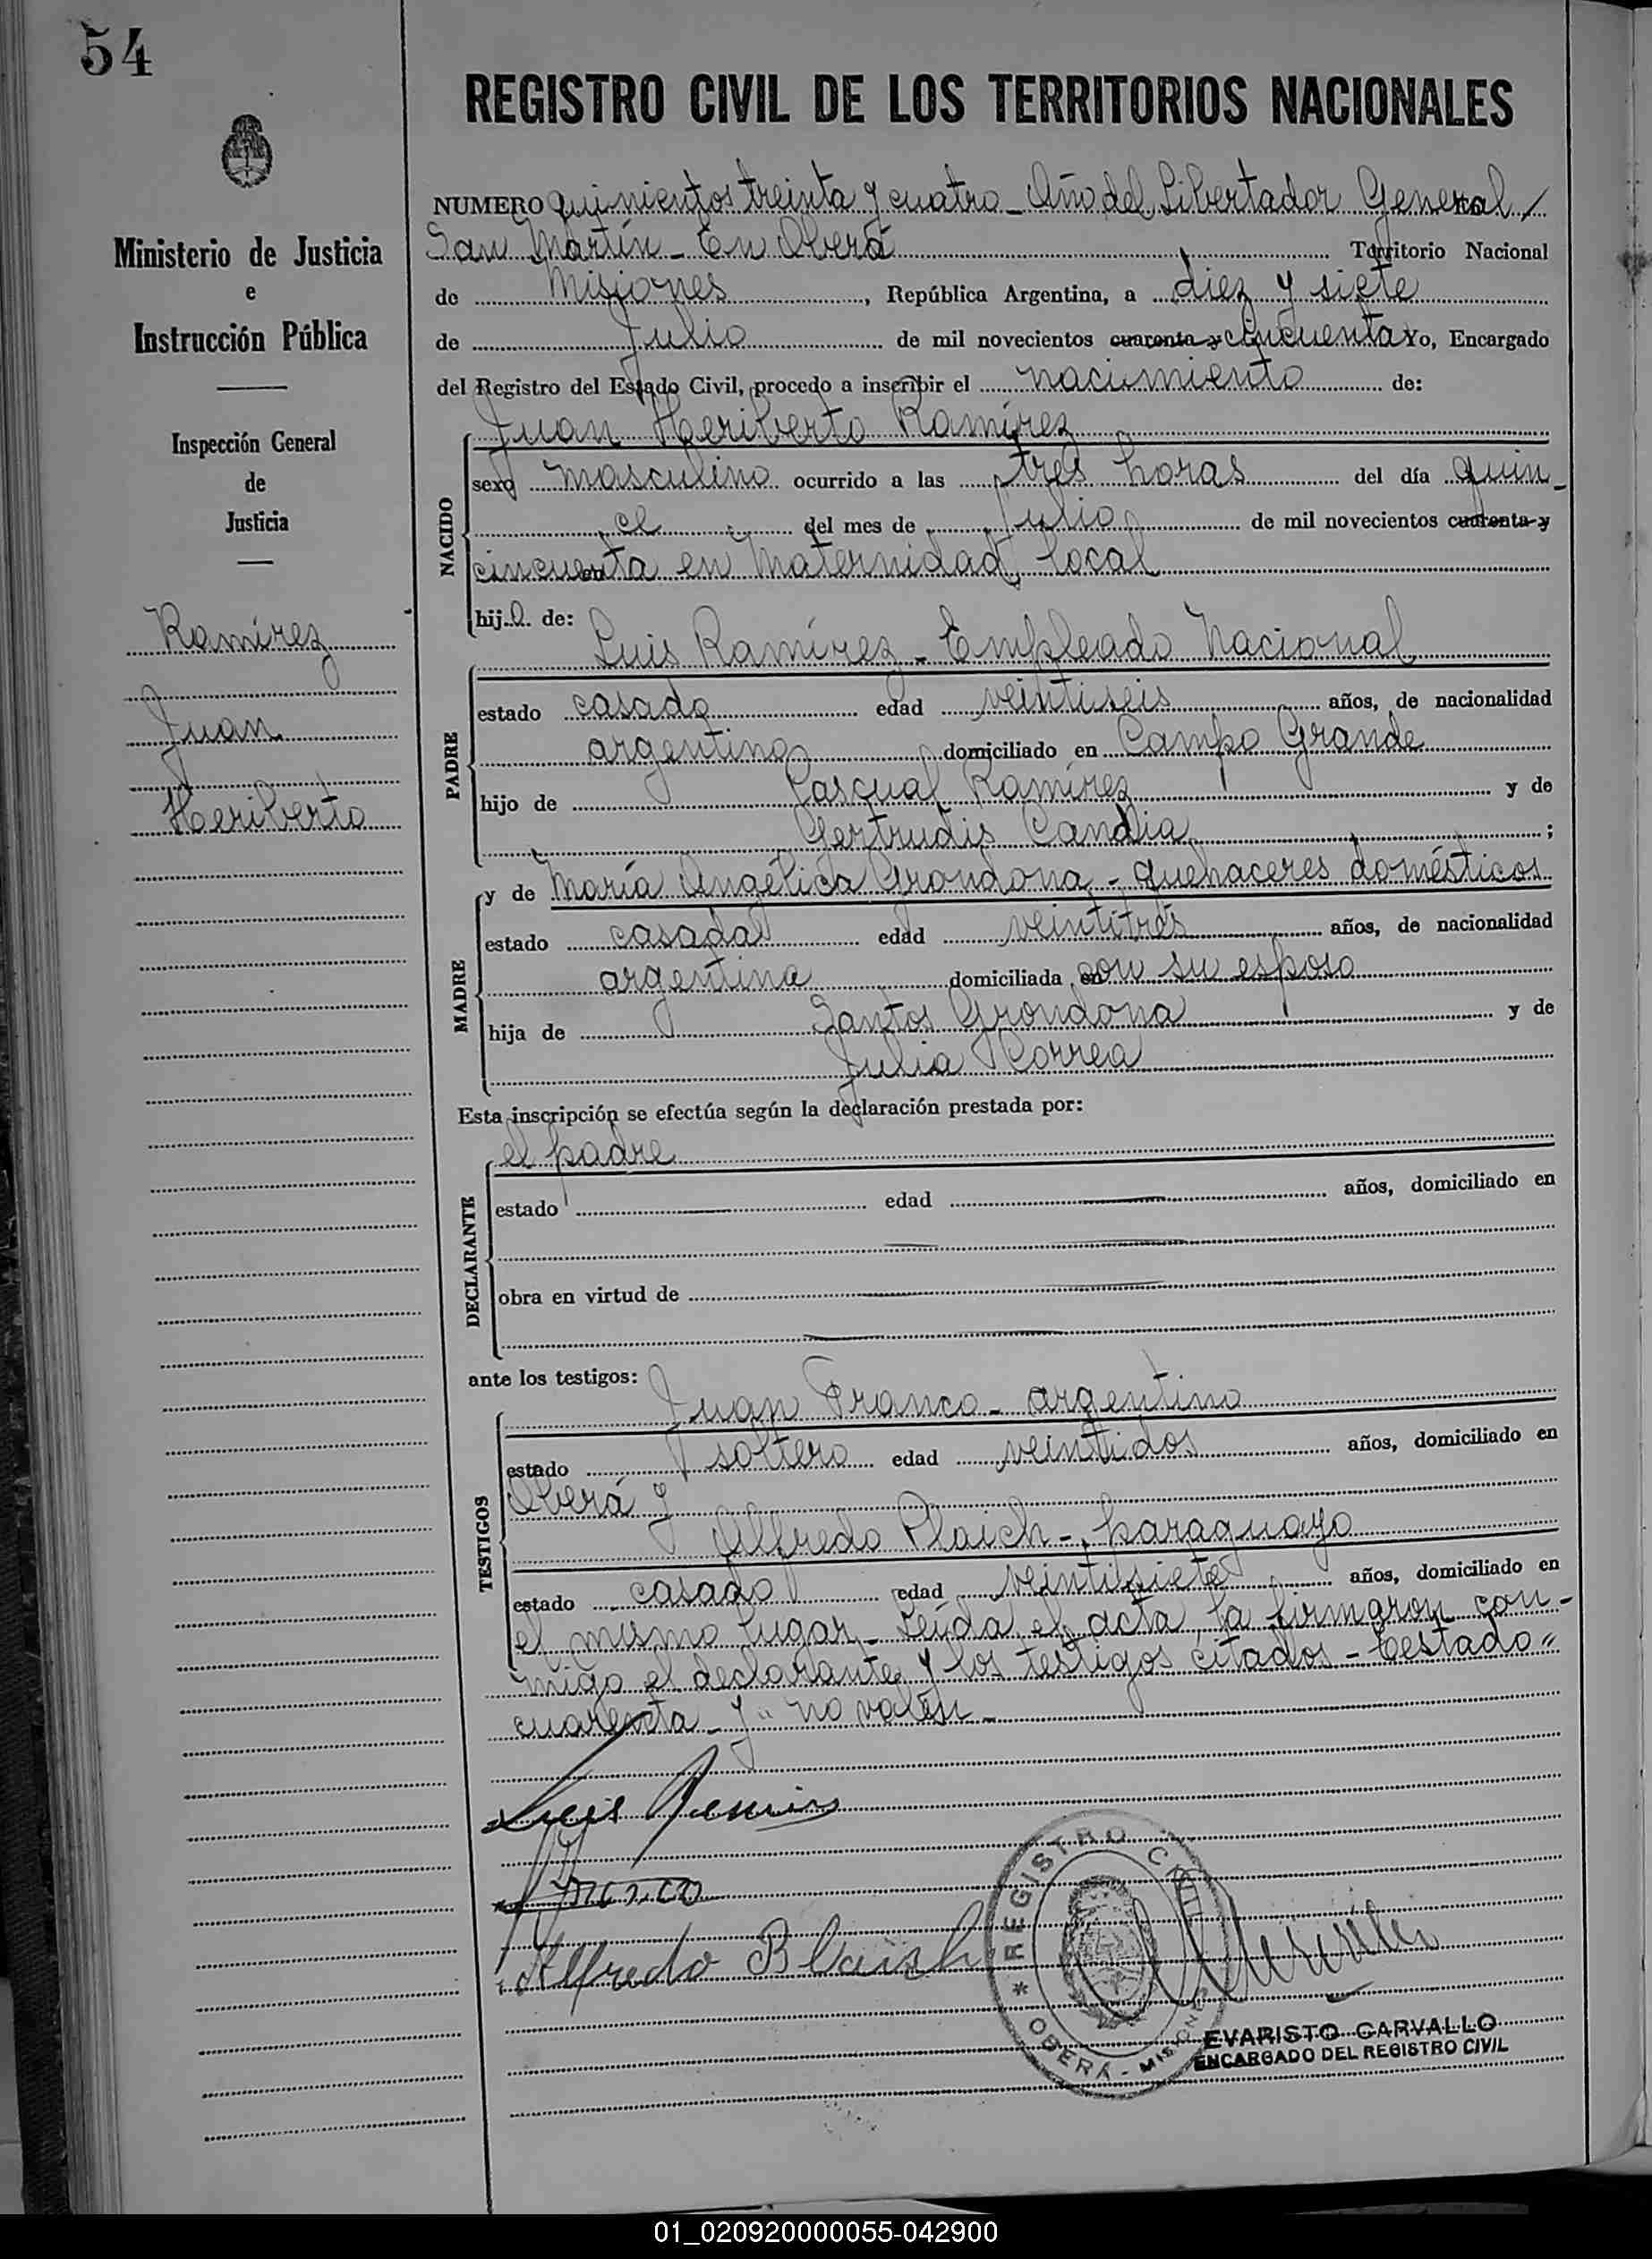 54
REGISTRO CIVIL DE LOS TERRITORIOS NACIONALES
Ministerio de Justicia
e
Instrucción Pública
Inspección General
de
Justicia
Ramírez
Juan
Heriberto
NUMERO quinientos treinta y cuatro - Año del Libertador General /
San Martín - En Oberá Territorio Nacional
de Misiones, República Argentina, a diez y siete
de Julio de mil novecientos cuarenta y cincuenta Yo, Encargado
del Registro del Estado Civil, procedo a inscribir el nacimiento de:
NACIDO
Juan Heriberto Ramírez
sexo masculino ocurrido a las tres horas del día quin-
ce del mes de Julio de mil novecientos cuarenta y
cincuenta en Maternidad local
hijo de:
PADRE
Luis Ramírez - Empleado Nacional
estado casado edad veintiseis años, de nacionalidad
argentino domiciliado en Campo Grande
hijo de Pascual Ramírez y de
Gertrudis Candia ;
MADRE
y de María Angélica Grondona - quehaceres domésticos
estado casada edad veintitrés años, de nacionalidad
argentina domiciliada con su esposo
hija de Santos Grondona y de
Julia Correa
Esta inscripción se efectúa según la declaración prestada por:
DECLARANTE
el padre
estado edad años, domiciliado en
obra en virtud de
ante los testigos:
TESTIGOS
Juan Franco - argentino
estado soltero edad veintidos años, domiciliado en
Oberá y
Alfredo Plaich - paraguayo
estado casado edad veintisiete años, domiciliado en
el mismo lugar - Leída el acta, la firmaron con-
migo el declarante y los testigos citados - Testado "
cuarenta - y " no valen -
Luis Ramirez
Franco
Alfredo Blaich
REGISTRO CIVIL
* OBERÁ - MISIONES
EVARISTO CARVALLO
ENCARGADO DEL REGISTRO CIVIL
01_020920000055-042900